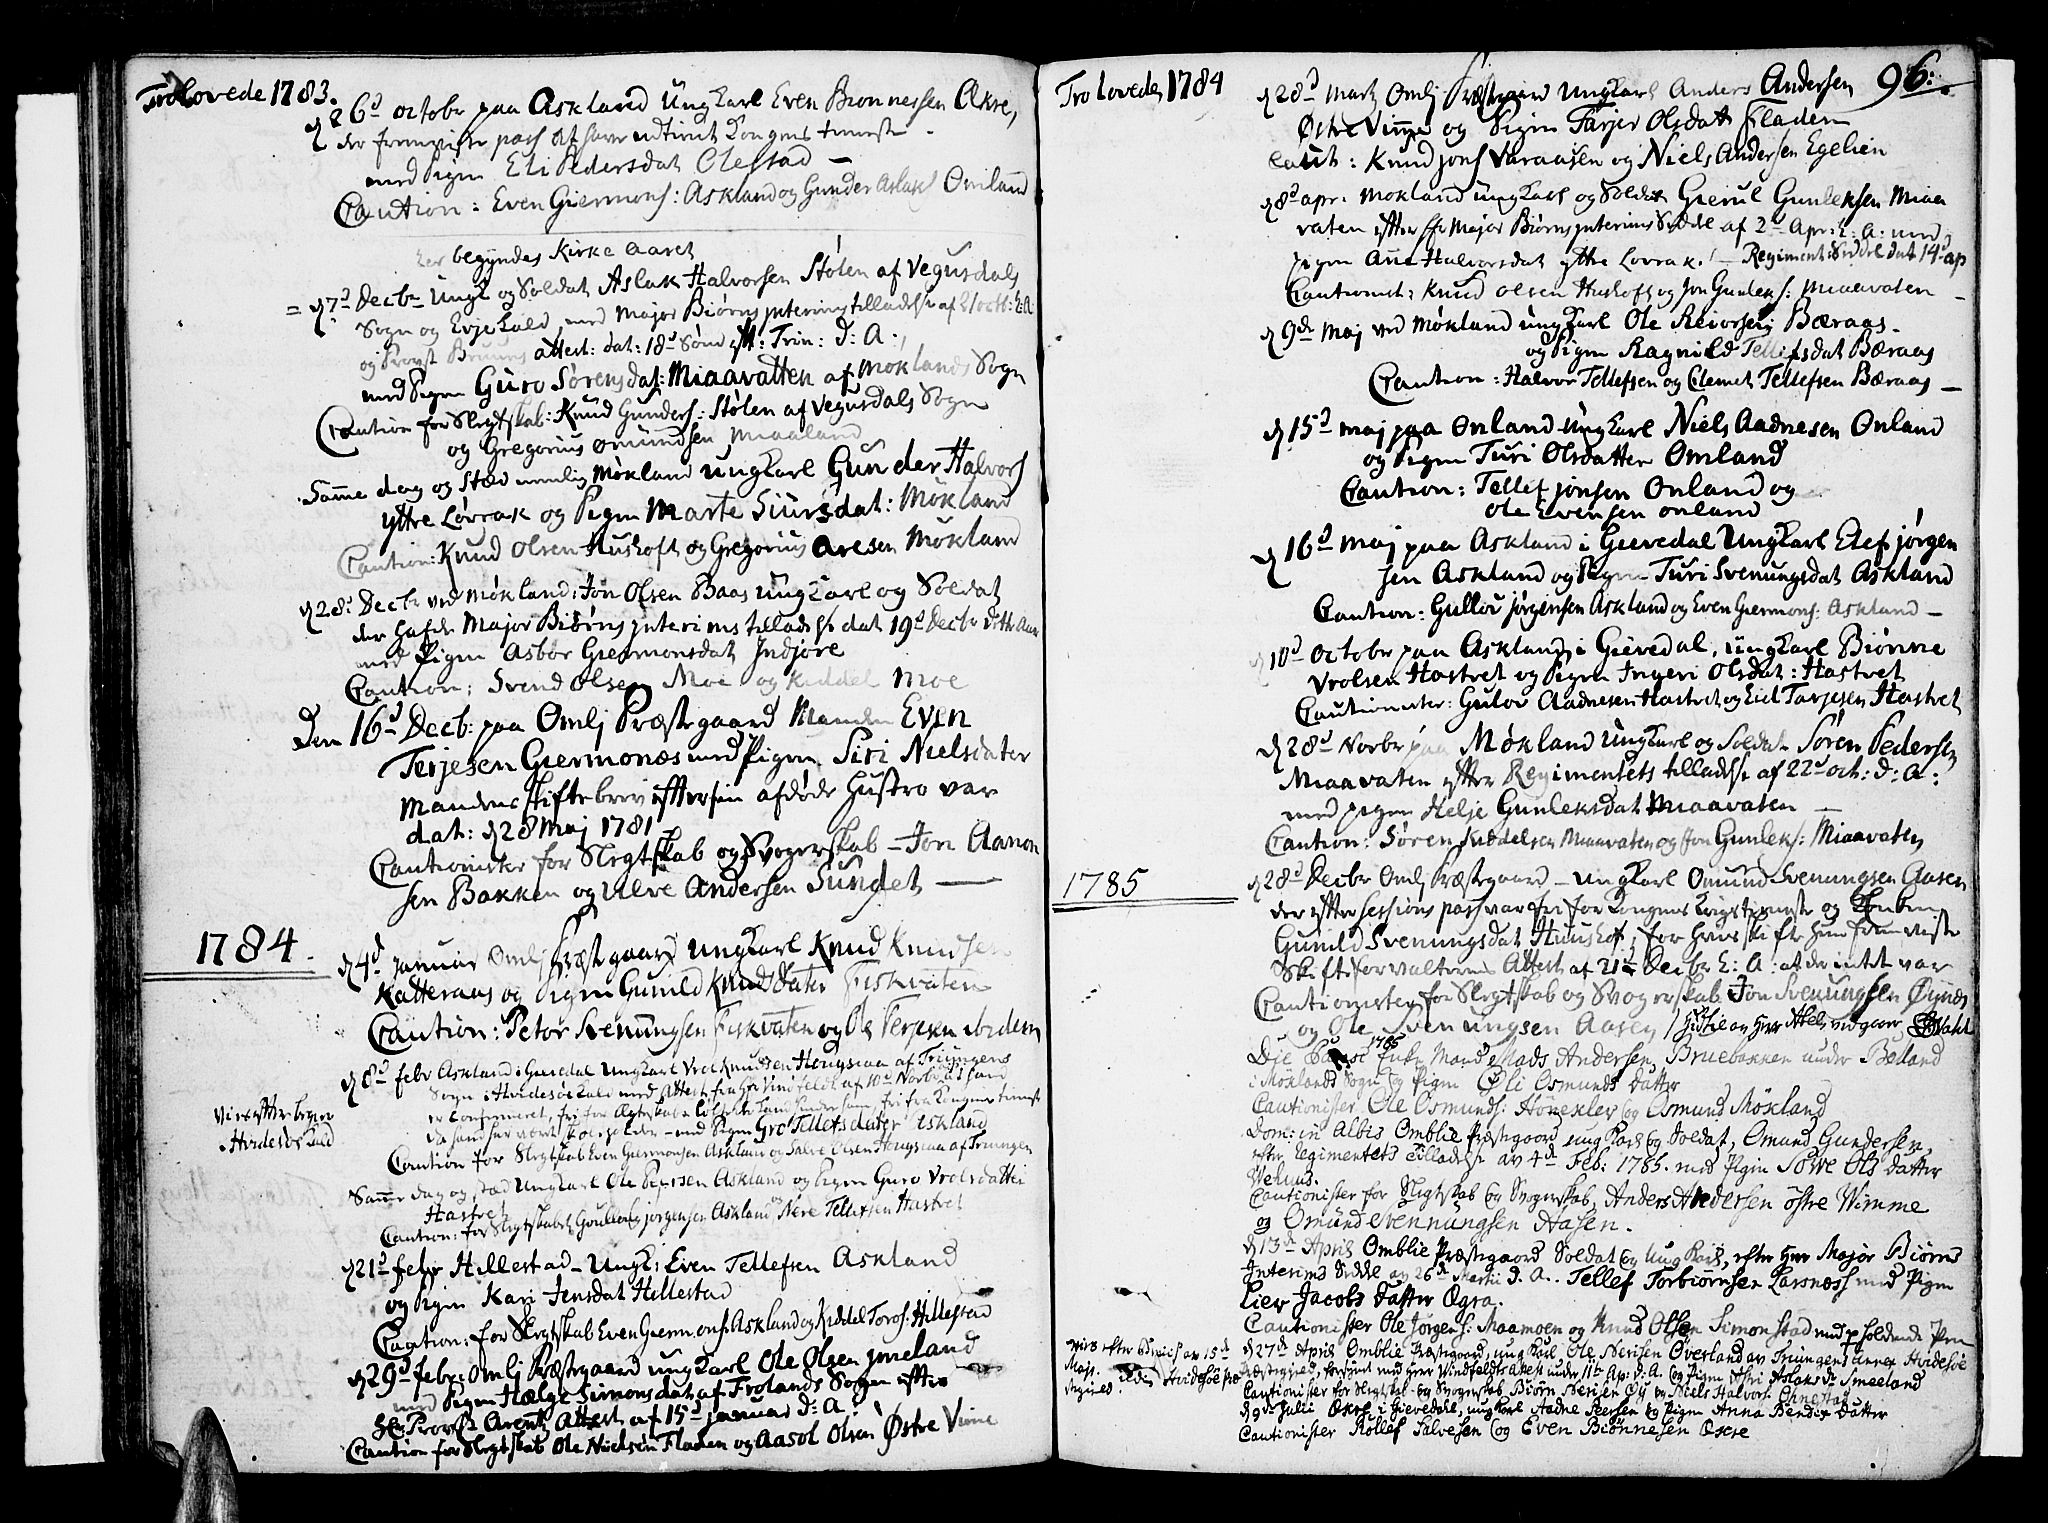 Trolovede 1783.
d 26d octobr paa Askland Ungkarl Even Bronnessen Ækre,
der fremviiste pass at have udtient Kongens tieneste
med Pigen Eli Pedersdat Olestad —
Caution: Even Giermons: Askland og Gunder Aslaks Omland
her begyndes Kirke Aaret
= d 7d Decbr Ungk og Soldat Aslak Halvorsen Stølen af Vegusdals
Sogn og Evje Kald, med Major Biørns interims tilladelse af 21 octb: h: A:
og Provst Bruuns attest: dat: 18d Sønd eft: Trin: d: A:,
med Pigen Guro Sørensdat: Miaavatten af Moklands Sogn
Caution for Slegtskab: Knud Gunders: Stølen af Vegusdals Sogn
og Gregorius omundsen Miaaland
Samme dag og Stæd nemlig Møkland Ungkarl Gunder Halvors
yttre Løvrak og Pigen Marte Siursdat: Møkland
Caution: Knud Olsen Hushoft og Gregorius Aresen Møkland
d 28d Decbr ved Møkland: Jon Olsen Baas Ungkarl og Soldat
der hafde Major Biørns interims tilladelse dat 19d Decbr dette Aar
med Pigen Asbør Giermonsdat Indjore
Caution: Svend Olsen Moe og Kiddel Moe
Den 16d Decb: paa Omlj Præstegaard Manden Even
Terjesen Giermonæs med Pigen Siri Nielsdater
Mandens skiftebrev efter sin afdøde Hustro var
dat: d 28 Maj 1781
Cautionister for Slegtskab og Svogerskab — Jon Aanon
sen Bakken og Ulve Andersen Sundet —
1784.
d 4d Januar Omlj Præstegaard Ungkarl Knud Knudsen
Katteraas og Pigen Gunild Knudsdater Fiskvaten
Caution: Peter Svenungsen Fiskvaten og Ole Terjesen
d 8d febr Askland i Gievedal Ungkarl Vrol Knudsen Hougsaa af Triungens
Sogn i Hvidesøe Kald med Attest fra Hr Vindfeldt af 10d Novbr at hand
er Confirmeret, fri for Ægteskabs Løfte fri fra Kongens tienest
med Pigen Gro Tellefsdater Askland
Viies efter brev
Hvidesøe Kald
Caution for Slegtskab Even Giermonsen Askland og Salve Olsen Hougsaa af Triungen
Samme dag og stæd Ungkarl Ole Peersen Askland og Pigen Guro Vrolsdatter
Hastvet
Caution: for Slegtskabet Goullov Jørgensen Askland og Nere Tellefsen Hastvet
d 21d febr Hillestad — Ungk: Even Tellefsen Askland
og Pigen Kari Jensdat Hillestad
Caution: for Slegtskab Even Giermons: Askland og Kiddel Toros: Hillestad
d 29d febr: Omlj Præstegaard Ungkarl Ole Olsen Jmeland
med Pigen Hælge Simonsdat af Frolands Sogn efter
Hr Provst Arentz Attest af 15d Januar d: A:
Caution for Slegtskab Ole Nielsen Fladen og Aasol Olsen Østre Vimme
Trolovede 1784
96:
d 28d Marti Omlj Præstegaard Ungkarl Anders Andersen
Østre Vimme og Pigen Tarjer Olsdat Fladen
Caut: Knud Jons Varaasen og Niels Andersen Egelien
d 8d apr: Mokland Ungkarl og Soldat Gierul Gunleksen Miaa
vaten efter Hr Major Biørns interims Seddel af 2d Apr: h: A: med
pigen Anne Halvorsdat yttre Lovrak. — Regiments Seddel dat 14d ap
Cautionist: Knud Olsen Hushoft og Jon Gunleks: Miaavaten —
d 9de Maj ved Møkland ungkarl Ole Reiersen Bæraas.
og Pigen Ragnild Tellefsdat Bæraas
Caution: Halvor Tellefsen og Clemet Tellefsen Bæraas —
d 15d Maj paa Onland Ungkarl Niels Aadnesen Onland
og Pigen Turi Olsdatter Omland
Caution: Tellef Jonsen Onland og
Ole Evensen Onland
d 16d Maj paa Askland i Gievedal Ungkarl Elef Jørgen
sen Askland og Pigen Turi Svenungsdat Askland
Caution: Gullov Jørgensen Askland og Even Giermons: Askland —
d 10d October paa Askland i Gievedal, Ungkarl Biønne
Vrolsen Hastvet og Pigen Ingeri Olsdat: Hastvet
Cautionister: Gulov Aadnesen Hastvet og Eid Tarjesen Hastvet
d 28d Novbr paa Møkland Ungkarl og Soldat Søren Pedersen
Miaavaten efter Regimentets tilladelse af 22d oct: d: A:
med pigen Helje Gunleksdat Miaavaten —
Caution: Søren Kiddelsen Miaavaten og Jon Gunleks: Miaavaten
1785
d 28d Decbr Omlj Præstegaard — Ungkarl Omund Svenungsen Aasen
der efter Sessions pass var fri for Kongens Krigstieneste og Enken
Gunild Svenungsdat Huushof, for hvis skifte hun fremviste
Skifteforvalterens Attest af 21de Decbr h: A: at der intet var
Cautionister for Slegtskab og Svogerskab Jon Svenungsen
og Ole Svenungsen Aasen
1785 Enke Mand Mads Andersen Bruebakken under Beiland
i Møklands Sogn og Pigen Øli Osmunds Datter
Cautionister Ole Osmunds: Hønekley og Osmund Møkland
Dom: in Albis Omblie Præstegaard ung Karl og Soldat, Omund Gundersen,
efter Regimentets Tilladelse av 4d Feb: 1785. med Pigen Sørve Ols datter
Werhuus.
Cautionister for Slegtskab og Svogerskab, Anders Andersen østre Wimme
og Omund Svennungsen Aasen.
d 13de April Omblie Præstegaard Soldat og Ung Karl, efter Herr Major Biørns
Interims Seddel av 26d Martii d. A. Tellef Torbiørnsen Larsnæss med Pigen
Liev Jacobs Datter Øgra.
Cautionister Ole Jørgens: Maamoen og Knud Olsen Simonstad
d 27de April Omblie Præstegaard, ung Karl Ole Nerisen Øverland av Triungens annex Hvidesøe
Præstegield, forsynt med Herr Windfeldts Attest under 11te Ap: d. A. og Pigen Aslaks d: Smeeland
Cautionister for Slegtskab og Svogerskab Biørn Nerisen Øy og Niels Halvors:
d 9de Julii Økre i Gievedal, ungkarl Aadne Peersen og Pigen Anna Bendix Datter
Cautionister Rollef Salvesen og Even Biønnesen Øxre